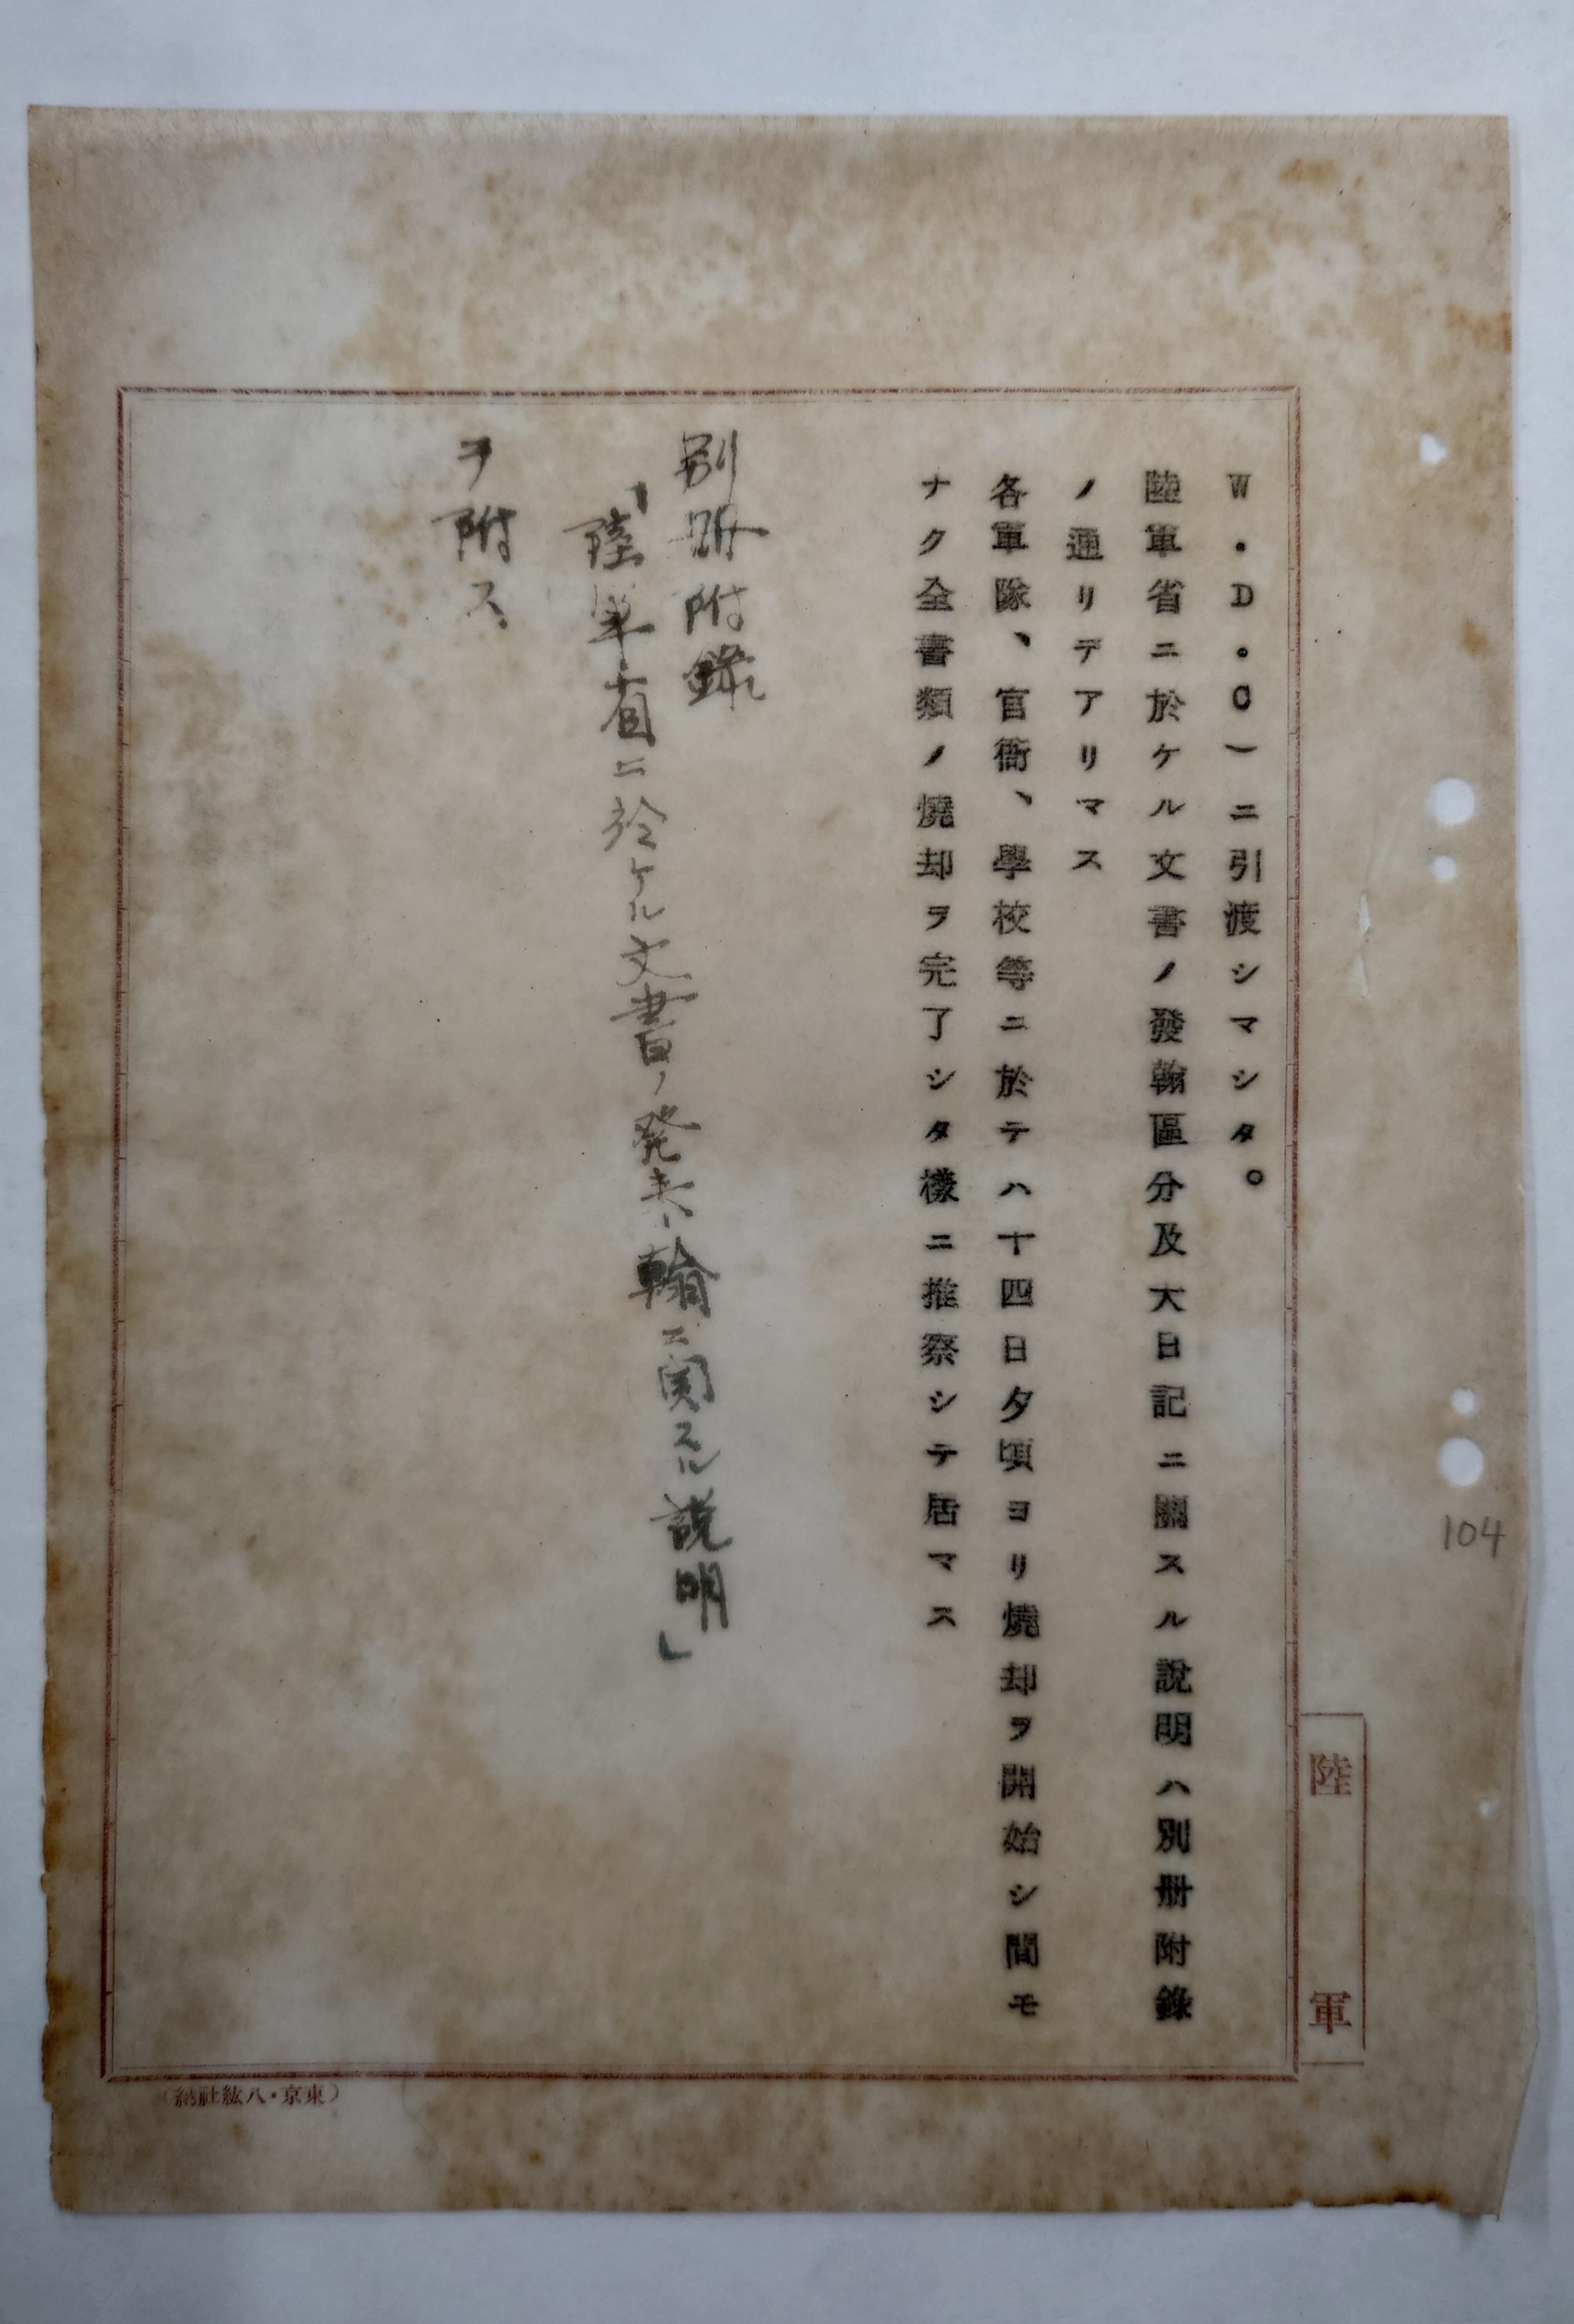 W.D.C)ニ引渡シマシタ。
陸軍省ニ於ケル文書ノ發翰區分及大日記ニ關スル說明ハ別册附錄
ノ通リデアリマス
各軍隊、官衙、學校等ニ於テハ十四日夕頃ヨリ燒却ヲ開始シ間モ
ナク全書類ノ燒却ヲ完了シタ樣ニ推察シテ居マス
別册附錄
「陸軍省ニ於ケル文書ノ発来翰ニ関スル説明」
ヲ附ス
陸軍
(東京・八紘社納)
104